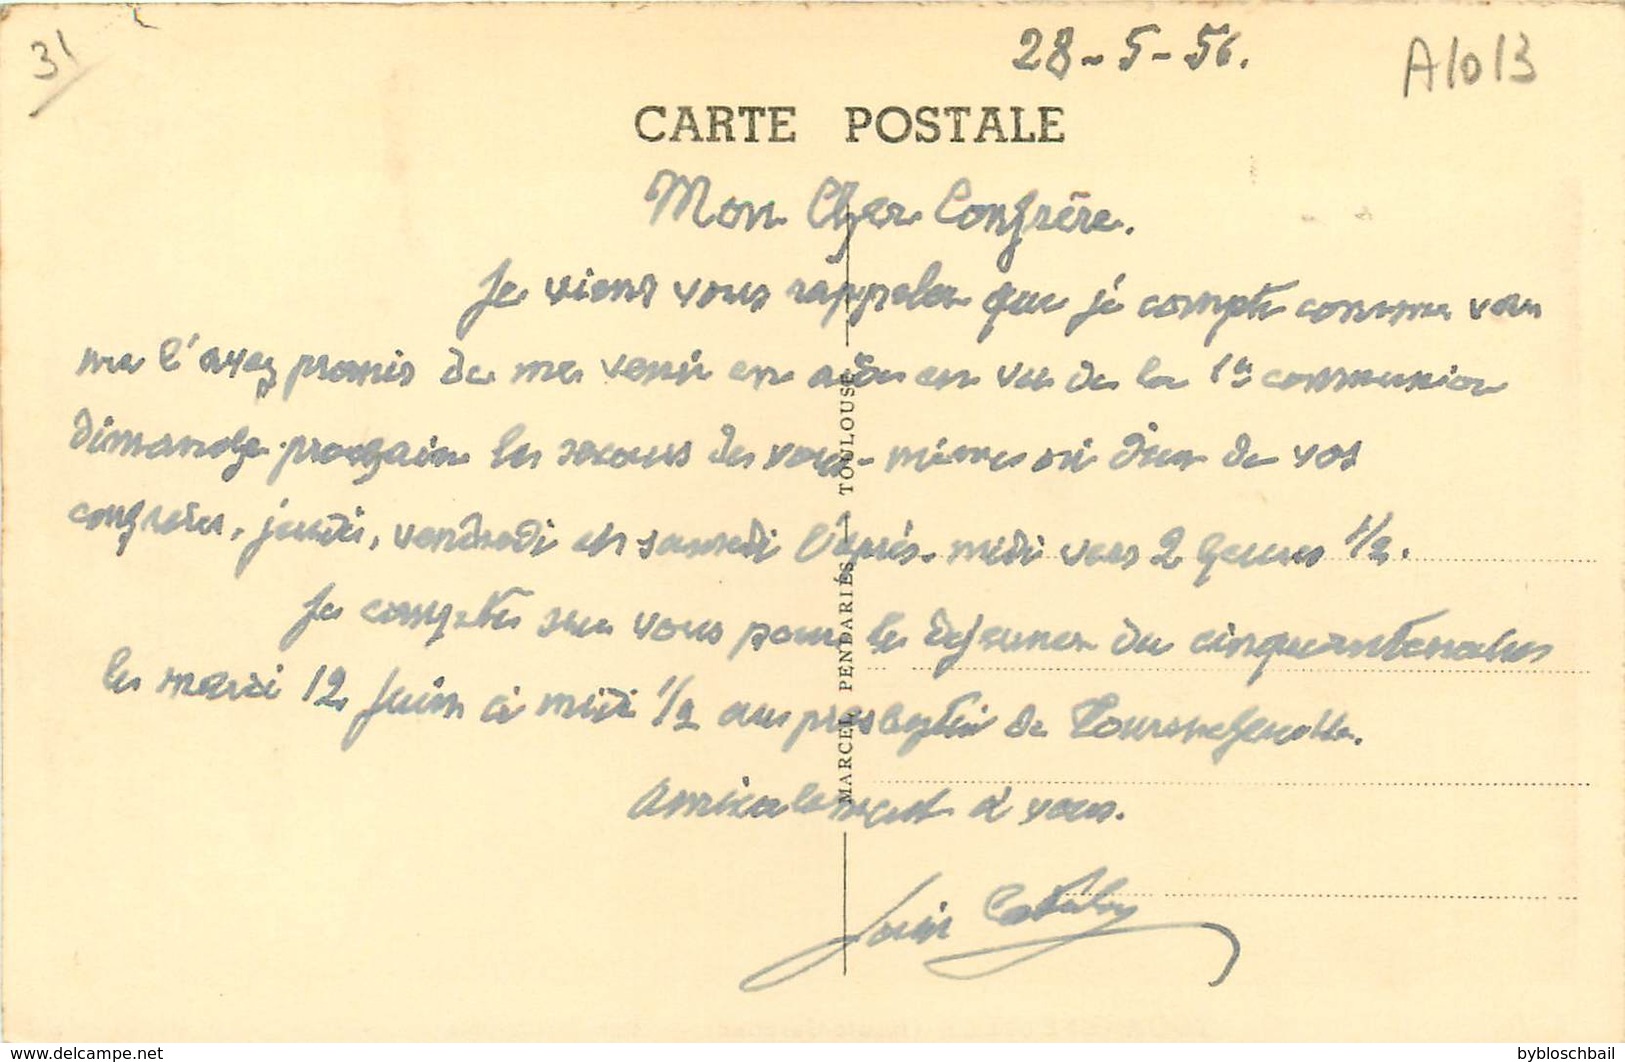 31
28-5-56.
A1013
CARTE POSTALE
Mon Cher Confrère.
Je viens vous rappeler que je compte comme vous
me l'avez promis de me venir en aide en vue de la 1re communion
dimanche prochain le secours de vous-même ou d'un de vos
confrères, jeudi, vendredi et samedi l'après-midi vers 2 heures 1/2.
Je compte sur vous pour le déjeuner du cinquantenaire
le mardi 12 Juin à midi 1/2 au presbytère de Tournefeuille.
Amicalement à vous.
Louis
MARCEL PENDARIÈS — TOULOUSE
www.delcampe.net
bybloschbail